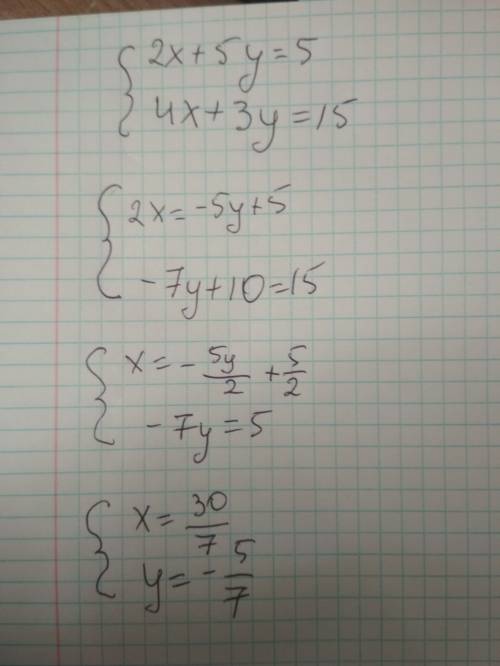 2x+5y=5
4x+3y=15
2x=-5y+5
-7y+10=15
x=-5y/2+5/2
-7y=5
x=30/7
y=-5/7